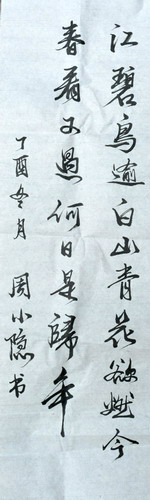 江碧鳥逾白山青花欲燃今
春看又過何日是歸年
丁酉冬月 周小隐书